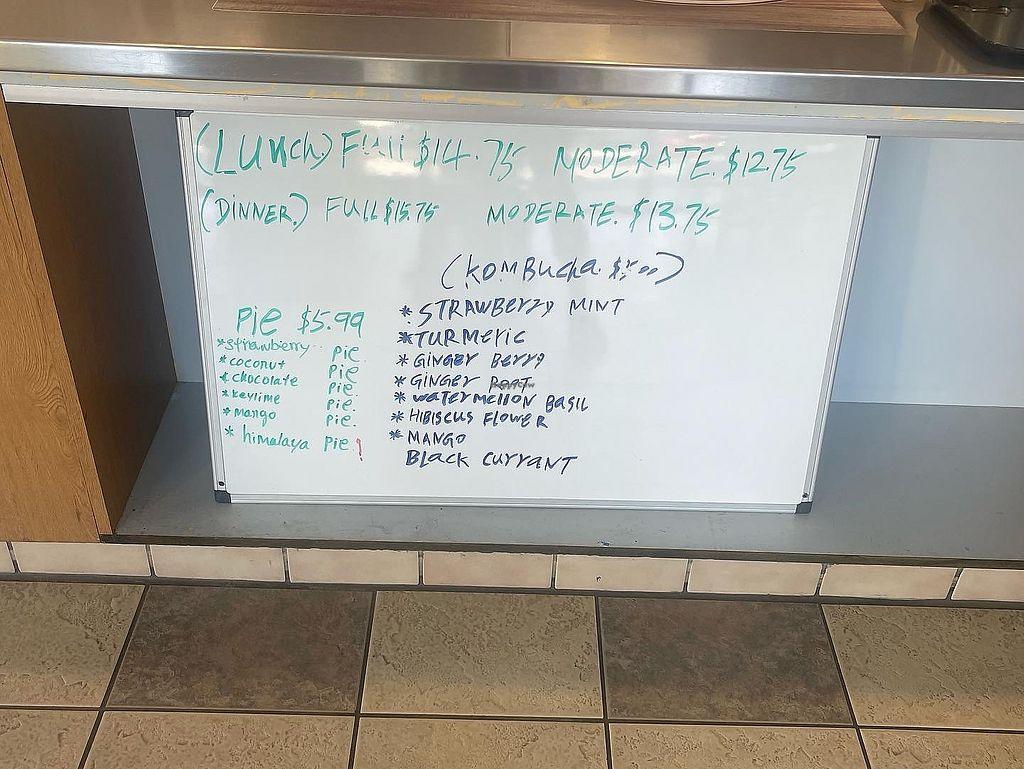 (Lunch) Full $14.75 MODERATE. $12.75
(DINNER.) FULL $15.75 MODERATE. $13.75
(KOMBucha.
Pie $5.99
*strawberry Pie.
*coconut Pie
*chocolate Pie.
*keylime Pie.
*mango Pie.
* himalaya Pie!
*STRAWBerry MINT
*TURMERIC
*GINGER BERRY
*GINGER
*WATERMELLON BASIL
*HIBISCUS FLOWER
*MANGO
BLACK CURRANT